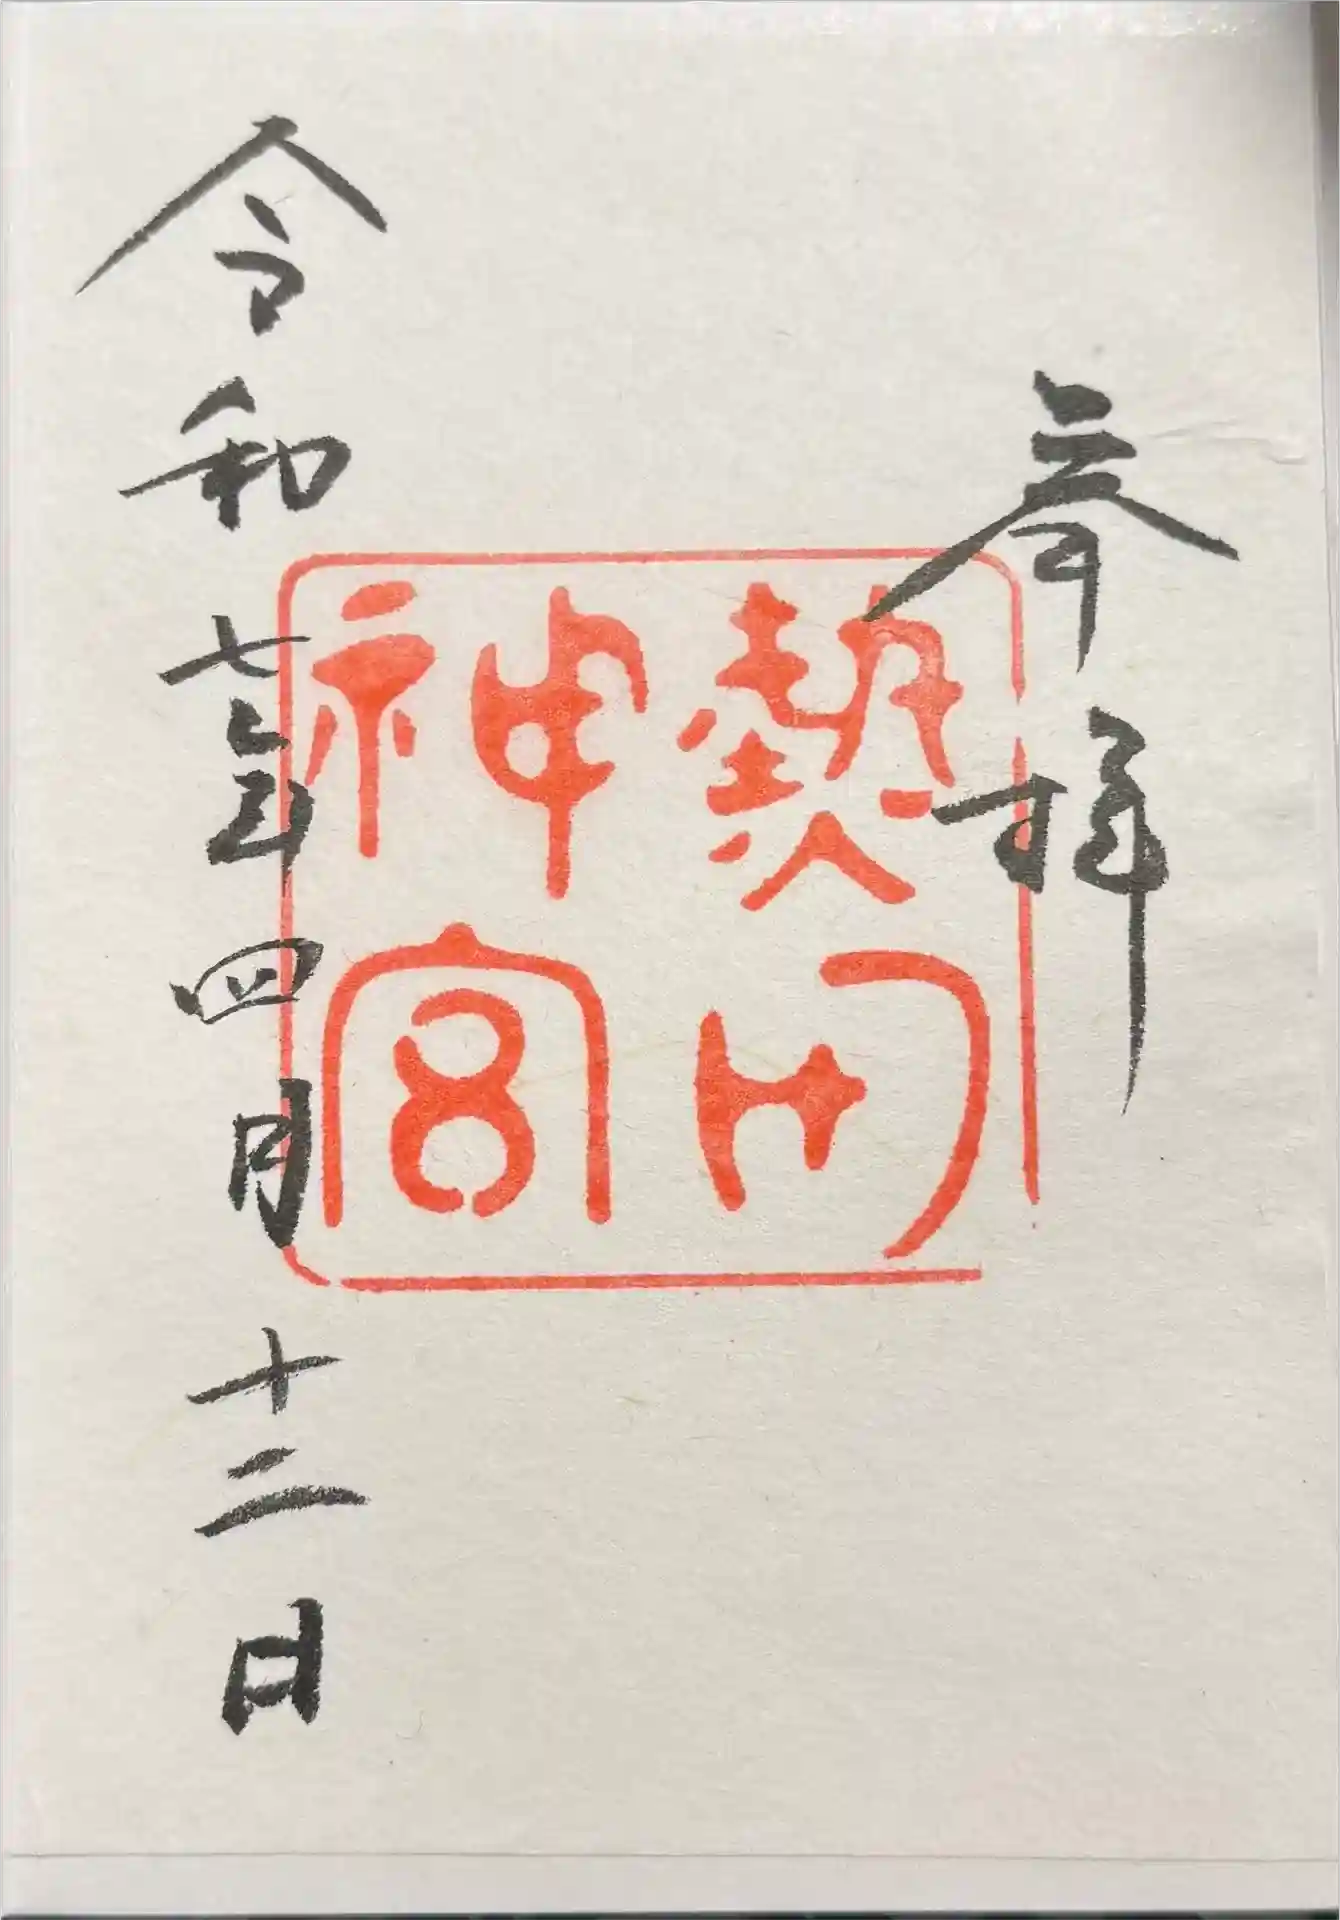 奉拝
熱田
神宮
令和七年四月十三日